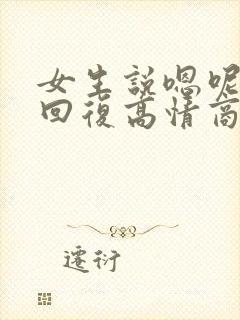 女生說嗯呢
回復高情商
遷衍